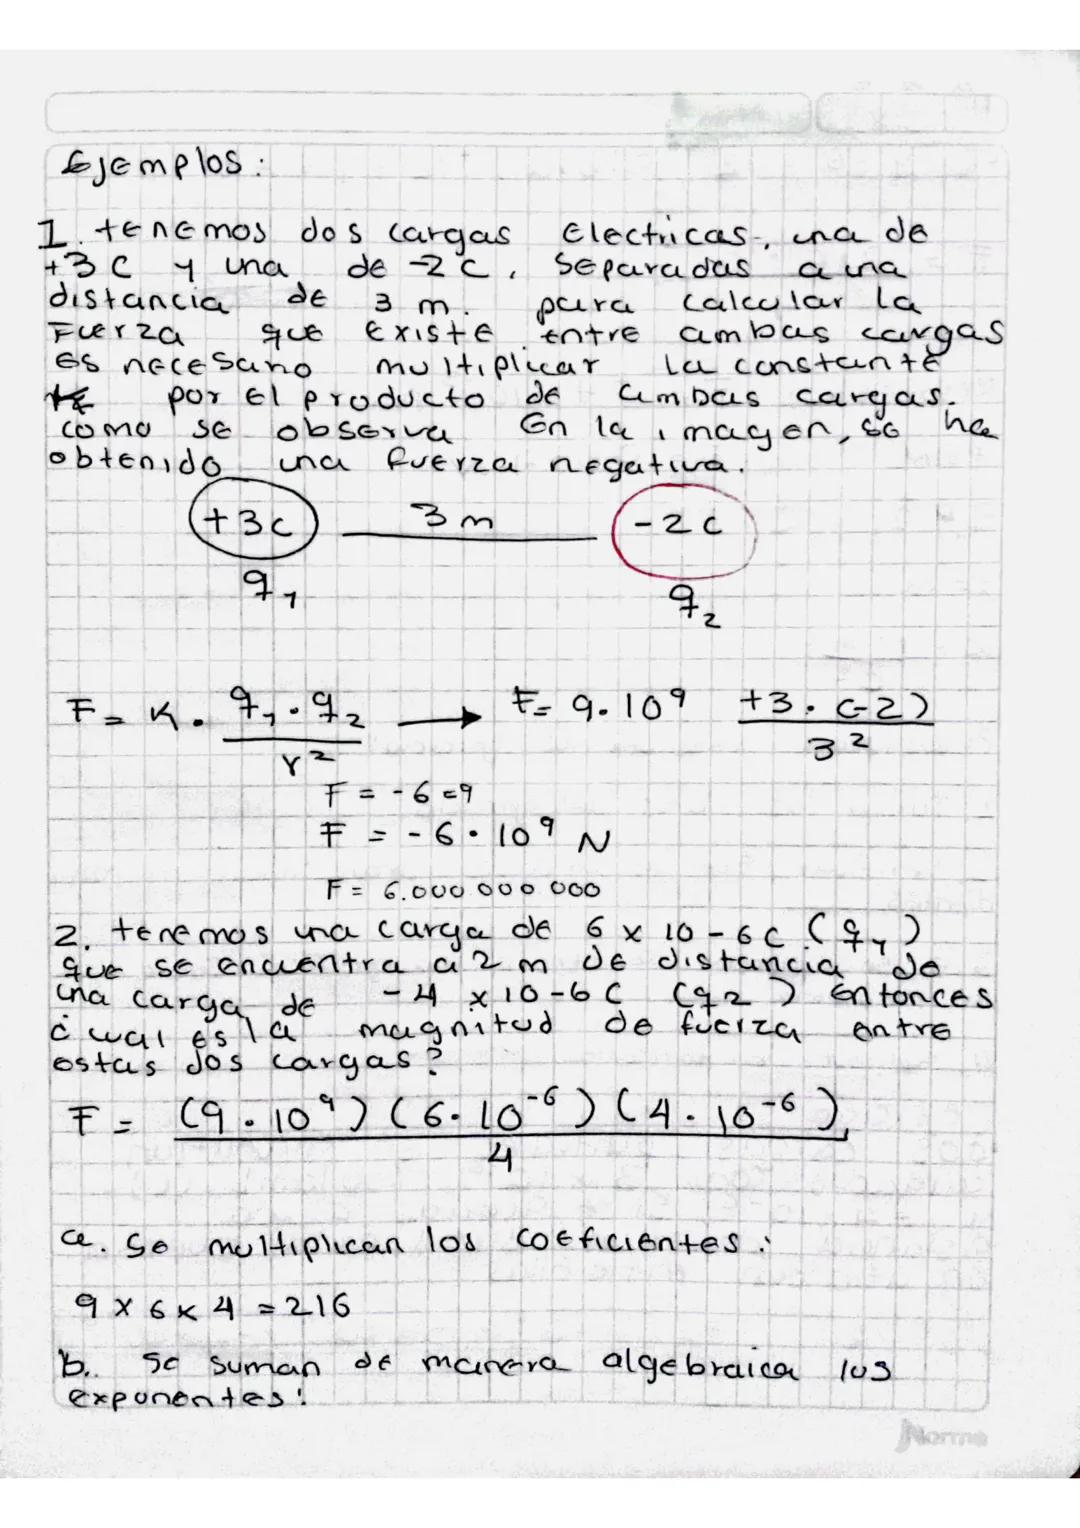 Ejemplos:
1. tenemos dos cargas Electricas, una de
+3C y una de -2C, separadas a una
distancia de 3 m. para calcular la
Fuerza que Existe entre ambas cargas
es necesario multiplicar la constante
por el producto de ambas cargas.
como se observa En la imagen, se ha
obtenido una fuerza negativa.
+3C 3 m -2C
q1 q2
F = K . q1 . q2 / r² → F = 9 . 10⁹ +3 . (-2) / 3²
F = -6 e9
F = -6 . 10⁹ N
F = 6.000 000 000
2. tenemos una carga de 6 x 10 - 6C (q1)
que se encuentra a 2 m de distancia de
una carga de -4 x 10 - 6 C (q2) entonces
¿cual es la magnitud de fuerza entre
estas dos cargas?
F = (9 . 10⁹) (6 . 10⁻⁶) (4 . 10⁻⁶) / 4
a. Se multiplican los coeficientes:
9 x 6 x 4 = 216
b. Se suman de manera algebraica los
exponentes:
Norma